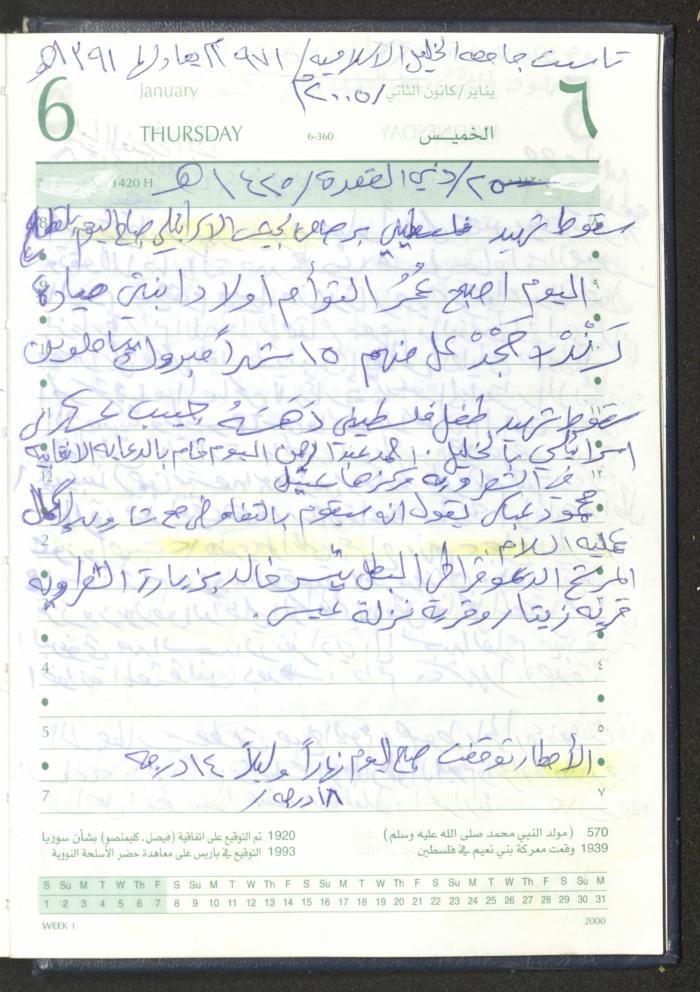 تاسست جامعه الخليل الاسلاميه / ١٩٧١م يعادلها ١٣٩١ه
6 January يناير/كانون الثاني /٢٠٠٥م ٦
THURSDAY 6-360 الخميس
1420 H ٢٥/ذي القعدة/١٤٢٥ه
سقوط شهيد فلسطيني برصاص الجيش الاسرائيلي صباح اليوم
اليوم اصبح عُمُر التوأم اولاد ابنتي
١٥ شهراً مبروك
سقوط شهيد طفل فلسطيني دَهَسَهُ جيب عسكري
اسرائيلي بالخليل. احمد عبد الرحمن اليوم قام بالدعايه الانتخابيه
في الشعراويه مركزها عتيل
محمود عباس يقول انه سيقوم بالتفاوض مع شارون لإكمال
عمليه السلام.
المرشح الديموقراطي البطل تيسير خالد يزيارة الشعراويه
قريه زيتا وقرية نزلة عيسى.
الأمطار توقفت صباح اليوم نهاراً وليلاً ١٤ درجه
١٨ درجه/
570 (مولد النبي محمد صلى الله عليه وسلم)
1939 وقعت معركة بني نعيم في فلسطين
1920 تم التوقيع على اتفاقية (فيصل، كليمنصو) بشأن سوريا
1993 التوقيع في باريس على معاهدة حضر الأسلحة النووية
S Su M T W Th F S Su M T W Th F S Su M T W Th F S Su M T W Th F S Su M
1 2 3 4 5 6 7 8 9 10 11 12 13 14 15 16 17 18 19 20 21 22 23 24 25 26 27 28 29 30 31
WEEK 1 2000